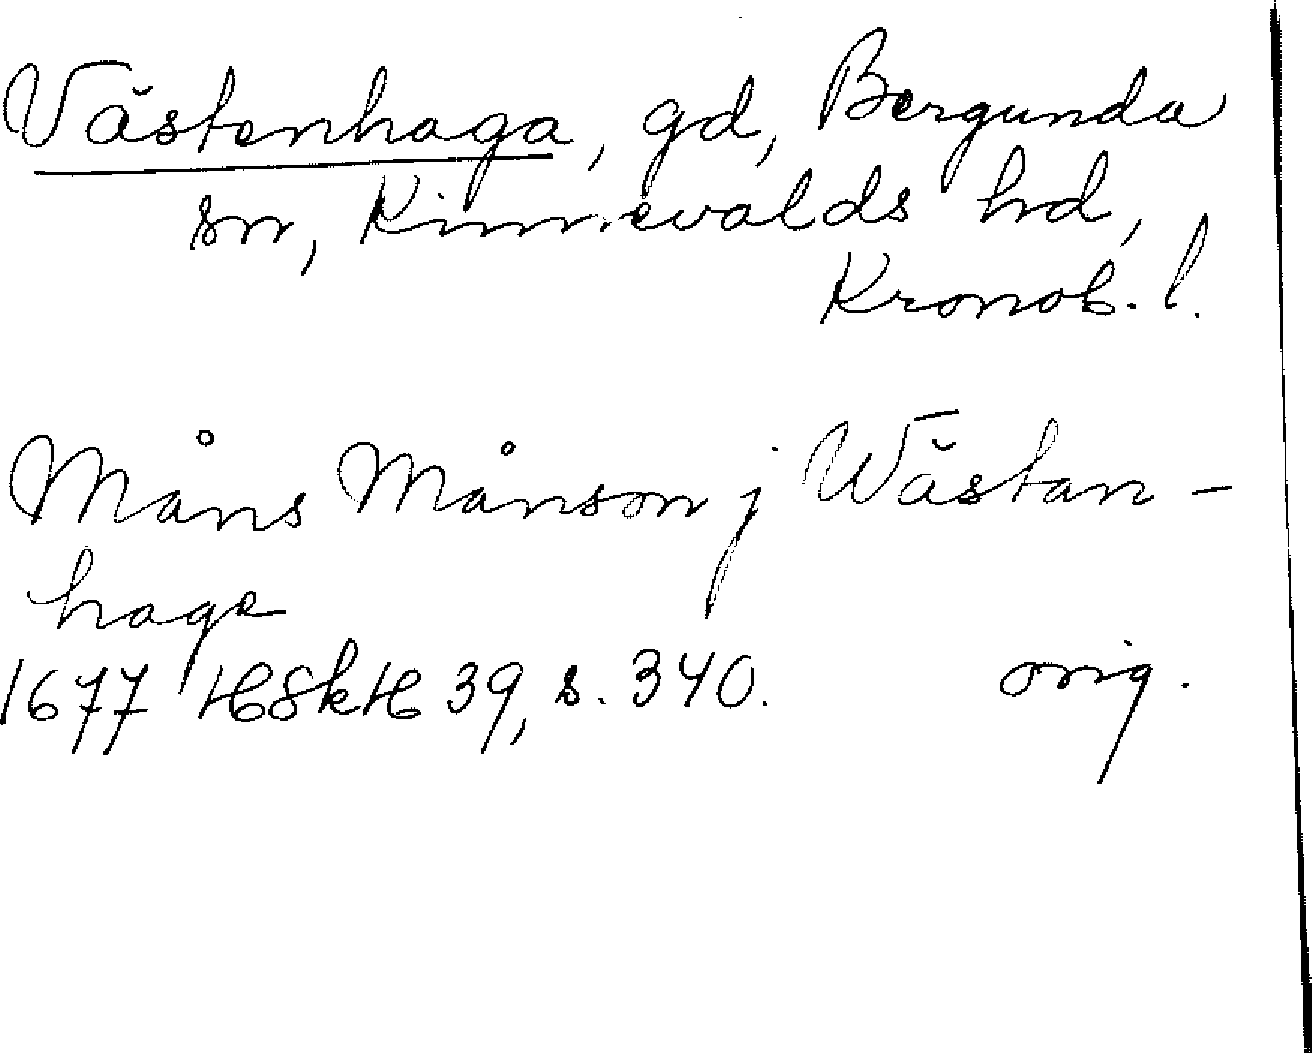 Västenhaga, gd, Bergunda
sn, Kinnevalds hd,
Kronob. l.
Måns Månson j Wästan-
haga
1677 HSkH 39, s. 340. orig.